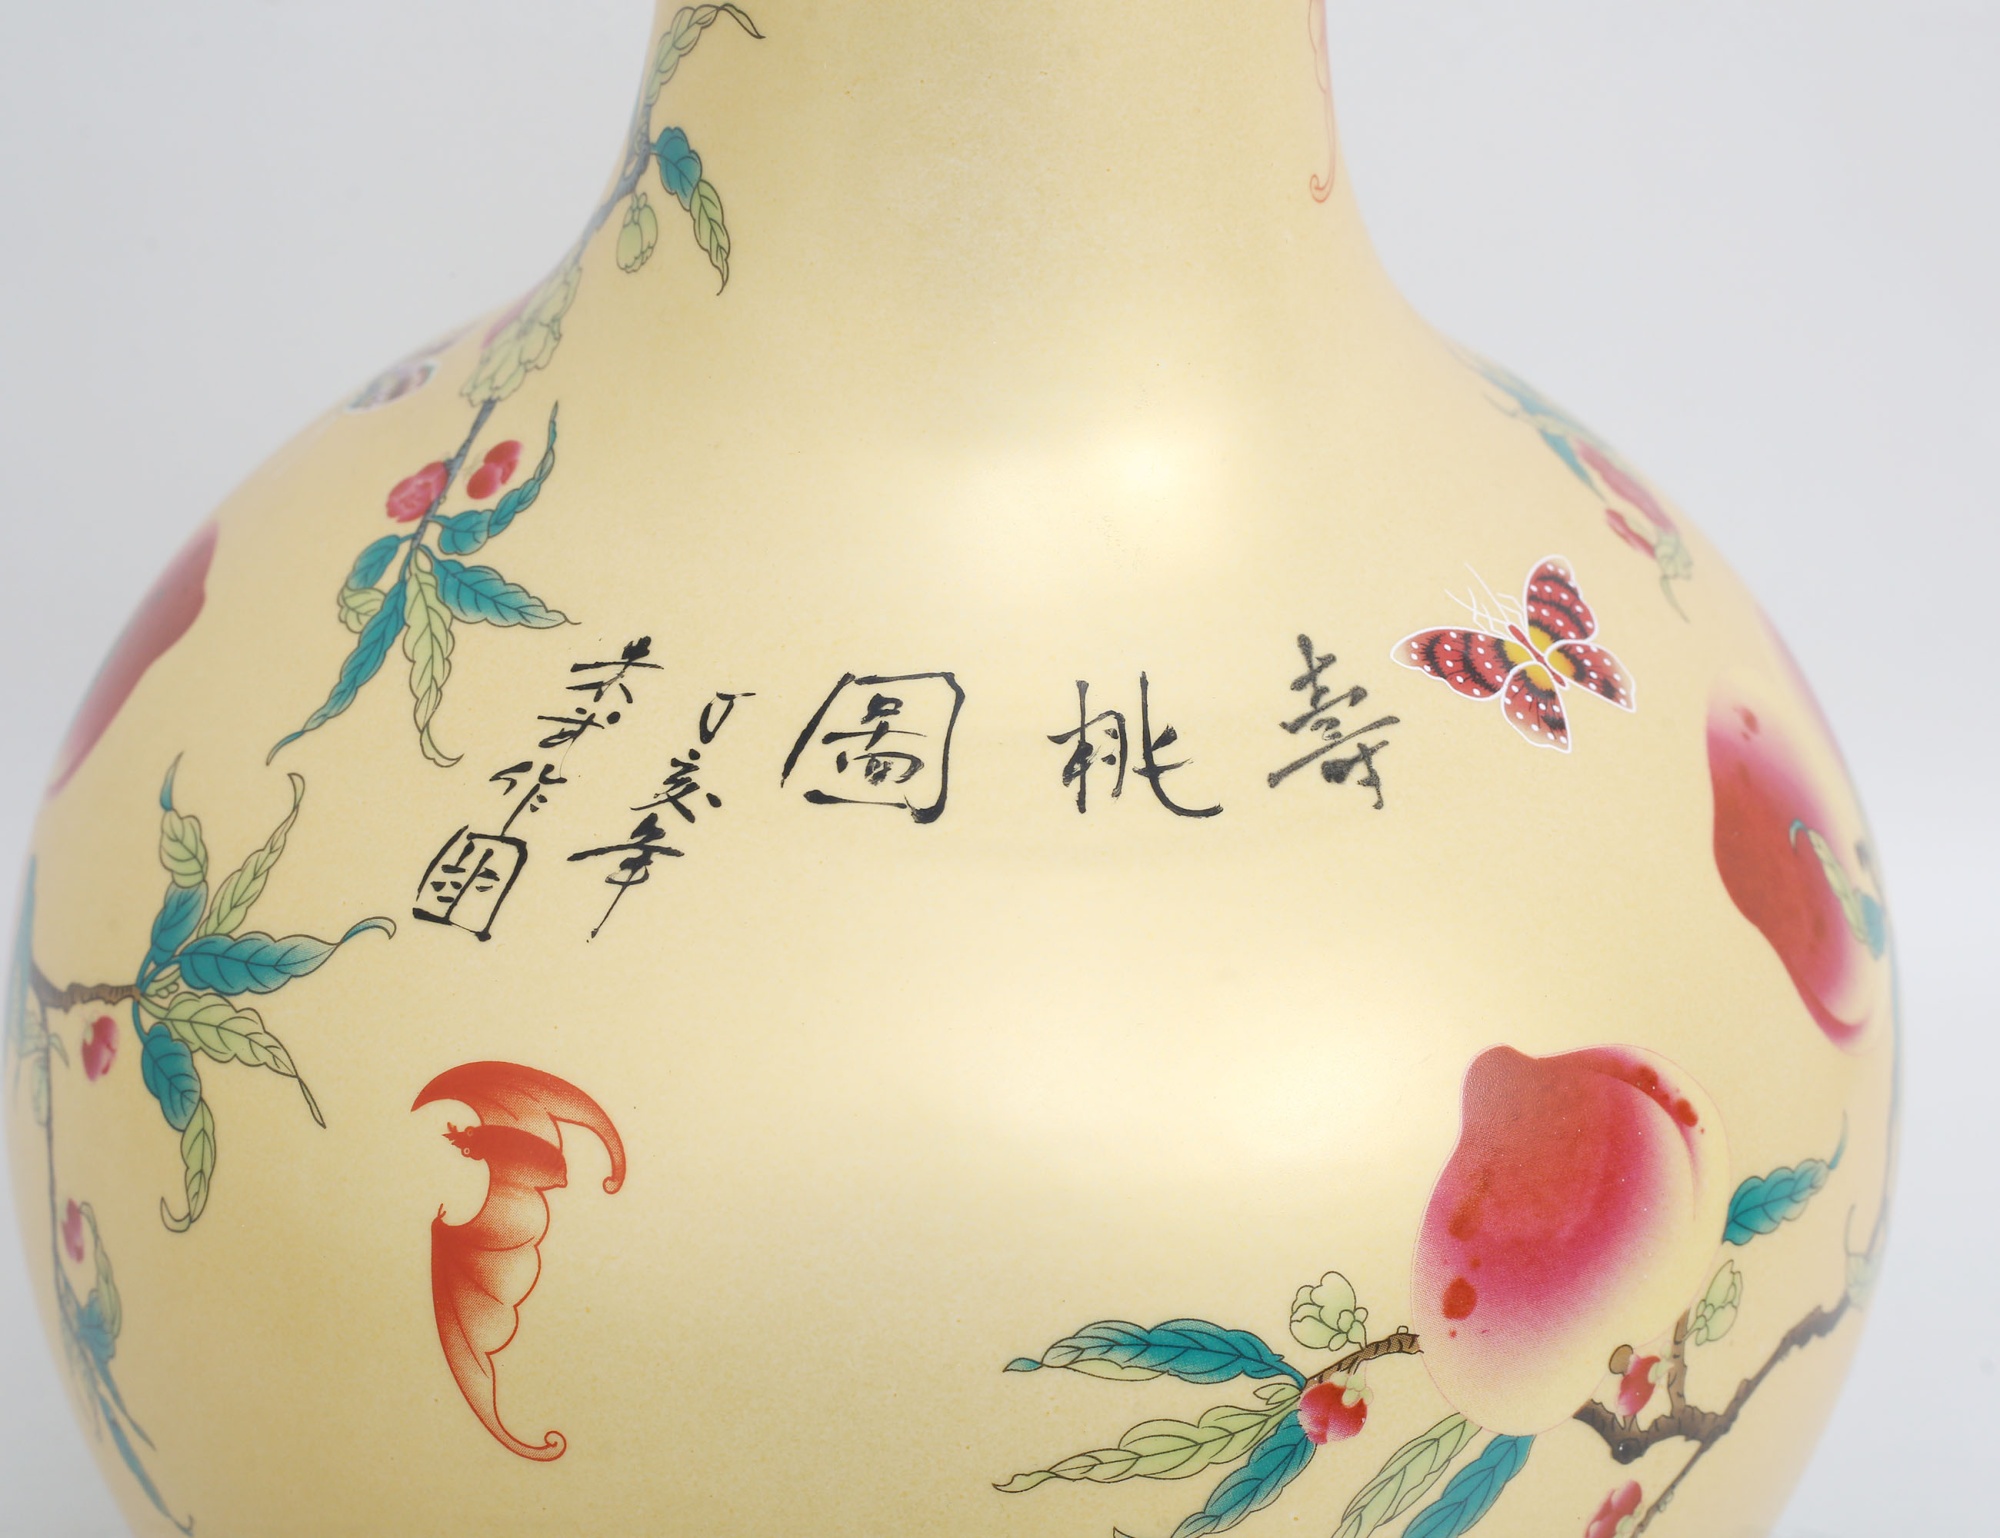 壽桃圖
丁亥年
作